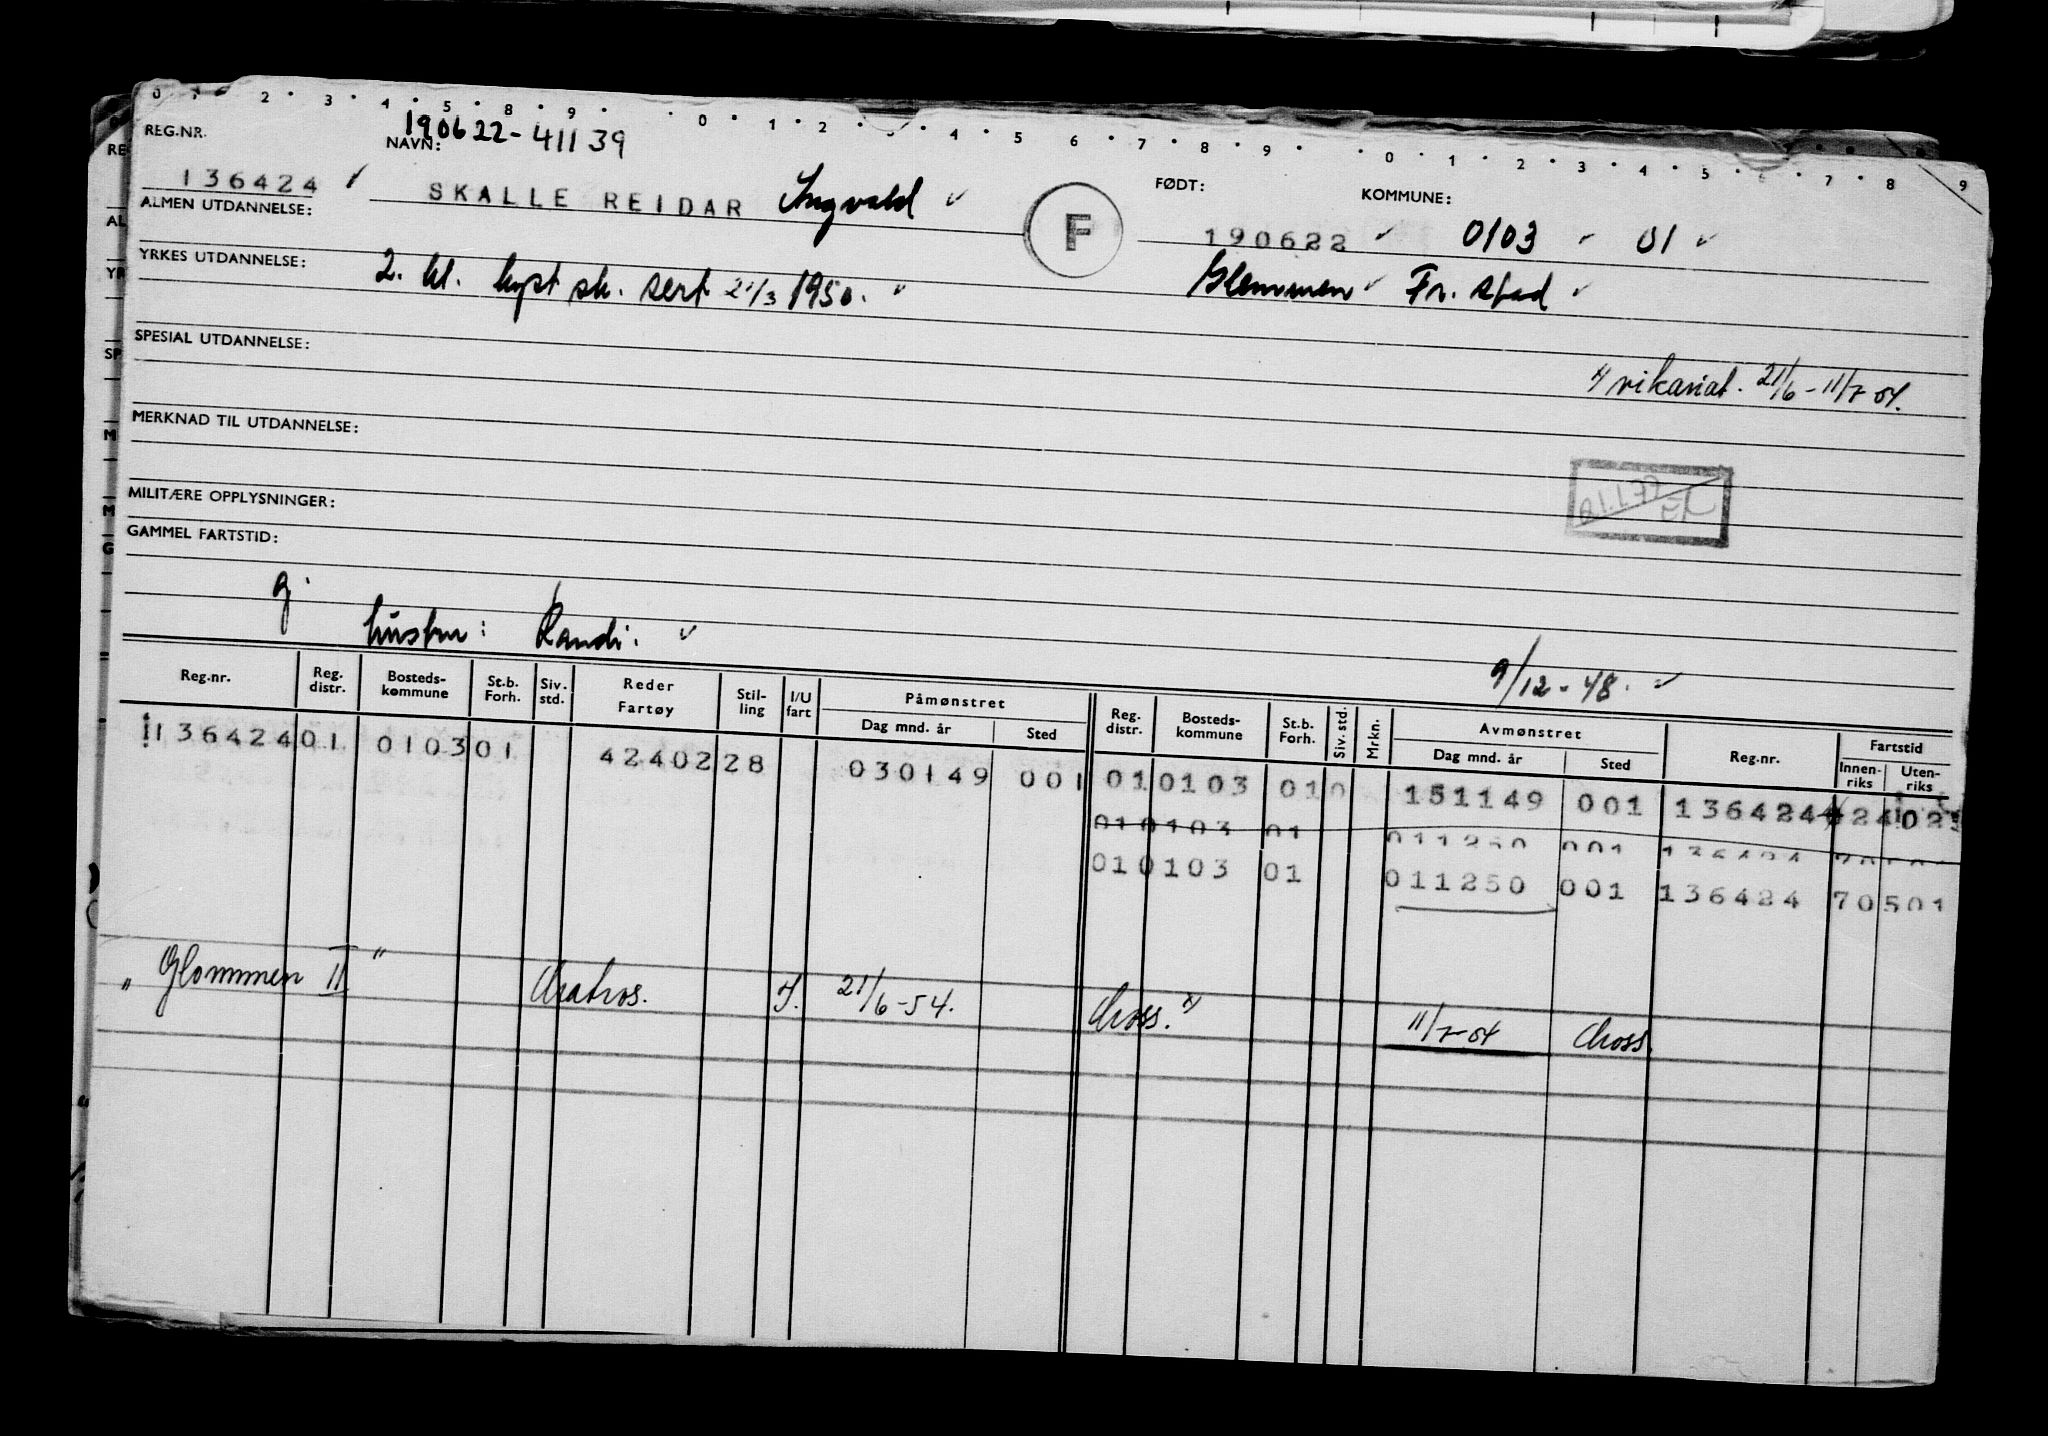 0 1 2 3 4 5 8 9 0 1 2 4 5 6 7 8 9 0 1 2 3 4 5 6 7 8 9
REG.NR. NAVN: 190622-41139 FØDT: KOMMUNE:
136424 SKALLE REIDAR Ingvald F 190622 0103 01
ALMEN UTDANNELSE:
YRKES UTDANNELSE: 2. kl. kyst sk. sert 21/3 1950. Glemmen Fr.stad
SPESIAL UTDANNELSE:
*) vikariat. 21/6 - 11/7 54.
MERKNAD TIL UTDANNELSE:
MILITÆRE OPPLYSNINGER:
GAMMEL FARTSTID:
g.
hustru: Randi.
9/12-48.
Reg.nr. Reg. distr. Bosteds-kommune St.b. Forh. Siv. std. Reder Fartøy Stil-ling I/U fart Påmønstret Dag mnd. år Sted Reg. distr. Bosteds-kommune St.b. Forh. Siv. std. Mrkn. Avmønstret Dag mnd. år Sted Reg.nr. Fartstid Innen-riks Uten-riks
136424 01 0103 01 4240228 030149 001 01 0103 01 0 151149 001 136424
01 0103 01 011250 001 136424
01 0103 01 011250 001 136424 70501
"Glommen II" Matros. I. 21/6-54. Moss. *) 11/7-54 Moss.